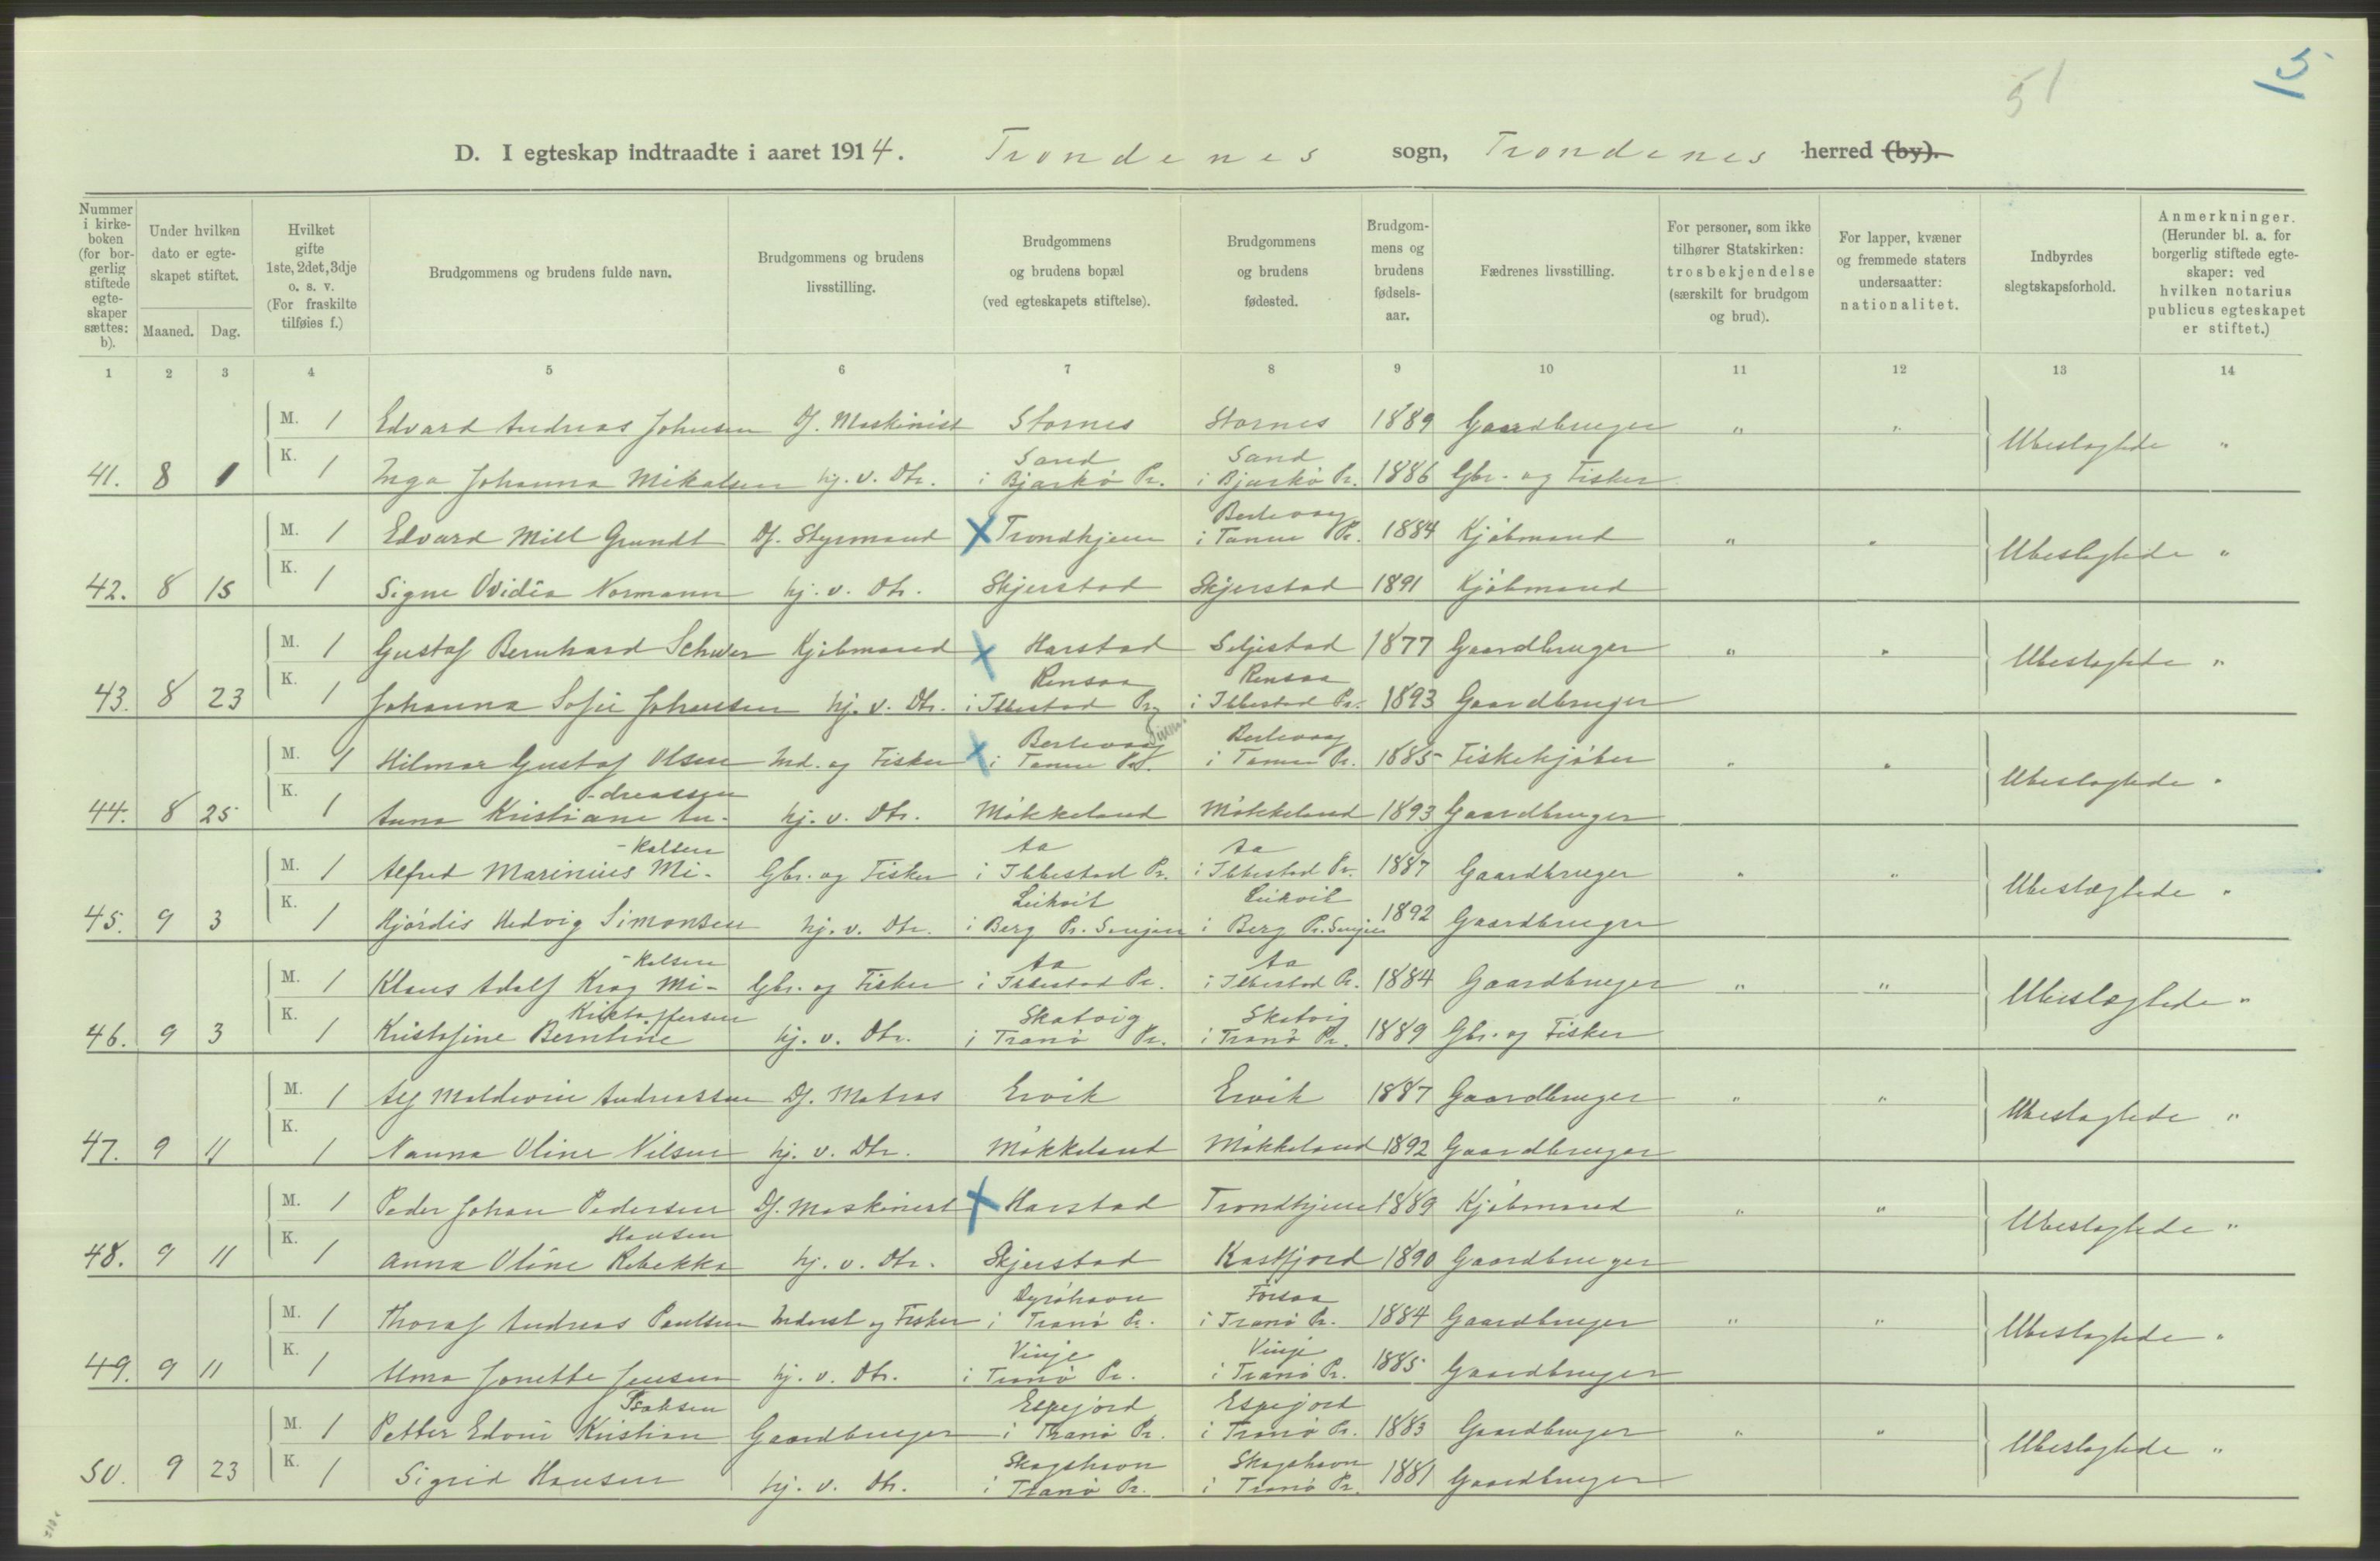 51
15
D. I egteskap indtraadte i aaret 1914. Trondenes sogn, Trondenes herred (by).
Nummer i kirke-boken (for bor-gerlig stiftede egte-skaper sættes: b).
Under hvilken dato er egte-skapet stiftet.
Maaned. Dag.
Hvilket gifte 1ste, 2det, 3dje o. s. v. (For fraskilte tilføies f.)
Brudgommens og brudens fulde navn.
Brudgommens og brudens livsstilling.
Brudgommens og brudens bopæl (ved egteskapets stiftelse).
Brudgommens og brudens fødested.
Brudgom-mens og brudens fødsels-aar.
Fædrenes livsstilling.
For personer, som ikke tilhører Statskirken: trosbekjendelse (særskilt for brudgom og brud).
For lapper, kvæner og fremmede staters undersaatter: nationalitet.
Indbyrdes slegtskapsforhold.
Anmerkninger. (Herunder bl. a. for borgerlig stiftede egte-skaper: ved hvilken notarius publicus egteskapet er stiftet.)
1 2 3 4 5 6 7 8 9 10 11 12 13 14
M. 1 Edvard Andreas Johnsen Df. Maskinist Stornes Stornes 1889 Gaardbruger " " Ubeslagtede "
41. 8 1 K. 1 Inga Johanna Mikalsen hj. v. Dtr. Sand i Bjarkö Pr. Sand i Bjarkö Pr. 1886 Gbr. og Fisker
M. 1 Edvard Mill Grundt Df. Styrmand Trondhjem Berlevaag i Tanen Pr. 1884 Kjöbmand " " Ubeslagtede "
42. 8 15 K. 1 Signe Ovidia Normann hj. v. Dtr. Skjerstad Skjerstad 1891 Kjöbmand
M. 1 Gustaf Bernhard Schver Kjöbmand Harstad Seljestad 1877 Gaardbruger " " Ubeslagtede "
43. 8 23 K. 1 Johanna Sofie Johansen hj. v. Dtr. Rensaa i Ibbestad Pr. Rensaa i Ibbestad Pr. 1893 Gaardbruger
M. 1 Hilmar Gustaf Olsen Ind. og Fisker Berlevaag i Tanen Pr. Berlevaag i Tanen Pr. 1885 Fiskekjöber " " Ubeslagtede "
44. 8 25 K. 1 Anna Kristiane An-dreassen hj. v. Dtr. Mökkeland Mökkeland 1893 Gaardbruger
M. 1 Alfred Marinius Mi-kalsen Gbr. og Fisker Aa i Ibbestad Pr. Aa i Ibbestad Pr. 1887 Gaardbruger " " Ubeslagtede "
45. 9 3 K. 1 Hjördis Hedvig Simonsen hj. v. Dtr. Leikvik i Berg Pr. Senjen Leikvik i Berg Pr. Senjen 1892 Gaardbruger
M. 1 Klaus Adolf Krog Mi-kalsen Gbr. og Fisker Aa i Ibbestad Pr. Aa i Ibbestad Pr. 1884 Gaardbruger " " Ubeslagtede "
46. 9 3 K. 1 Kristofine Berntine Kristoffersen hj. v. Dtr. Skatvig i Tranö Pr. Skatvig i Tranö Pr. 1889 Gbr. og Fisker
M. 1 Alf Maldevin Andreassen Df. Matros Ervik Ervik 1887 Gaardbruger " " Ubeslagtede "
47. 9 11 K. 1 Nanna Oline Nilsen hj. v. Dtr. Mökkeland Mökkeland 1892 Gaardbruger
M. 1 Peder Johan Pedersen Df. Maskinist Harstad Trondhjem 1889 Kjöbmand " " Ubeslagtede "
48. 9 11 K. 1 Anna Oline Rebekka Hansen hj. v. Dtr. Skjerstad Kastfjord 1890 Gaardbruger
M. 1 Thoraf Andreas Paulsen Inderst og Fisker Dyröhavn i Tranö Pr. Forsaa i Tranö Pr. 1884 Gaardbruger " " Ubeslagtede "
49. 9 11 K. 1 Alma Jonette Jensen hj. v. Dtr. Vinje i Tranö Pr. Vinje i Tranö Pr. 1885 Gaardbruger
M. 1 Petter Edvin Kristian Isaksen Gaardbruger Espejord i Tranö Pr. Espejord i Tranö Pr. 1883 Gaardbruger " " Ubeslagtede "
50. 9 23 K. 1 Sigrid Hansen hj. v. Dtr. Skogshavn i Tranö Pr. Skogshavn i Tranö Pr. 1881 Gaardbruger